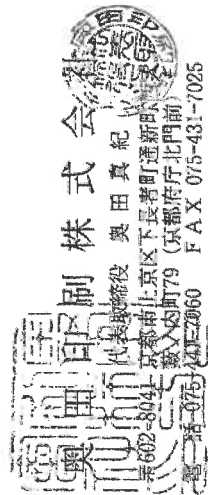 奥田印刷株式会社
代表取締役 奥田真紀
〒602-8041 京都市上京区下長者町通新町
藪之内町79 (京都府庁北門前)
電話 075-441-7060 FAX 075-431-7025